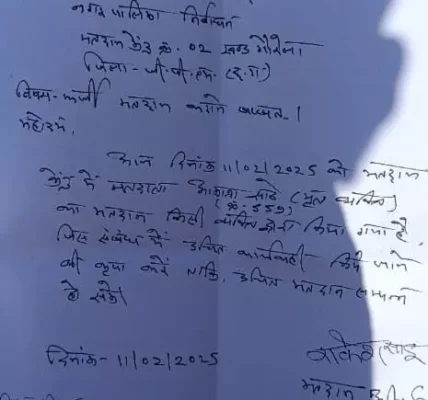 नगर पालिका निर्वाचन
मतदान केंद्र क्र. 02 खण्ड गौरेला
जिला - जी.पी.एम. (छ.ग)
विषय - फर्जी मतदान करने बाबत् ।
महोदय,
आज दिनांक 11/02/2025 को मतदान
केंद्र में मतदाता साहू (मृत व्यक्ति)
(क्र. 559)
का मतदान किसी व्यक्ति द्वारा किया गया है
जिस संबंध में उचित कार्यवाही किये जाने
की कृपा करें ताकि, उचित मतदान सम्पन्न
हो सके।
दिनांक - 11/02/2025
राकेश साहू
मतदान